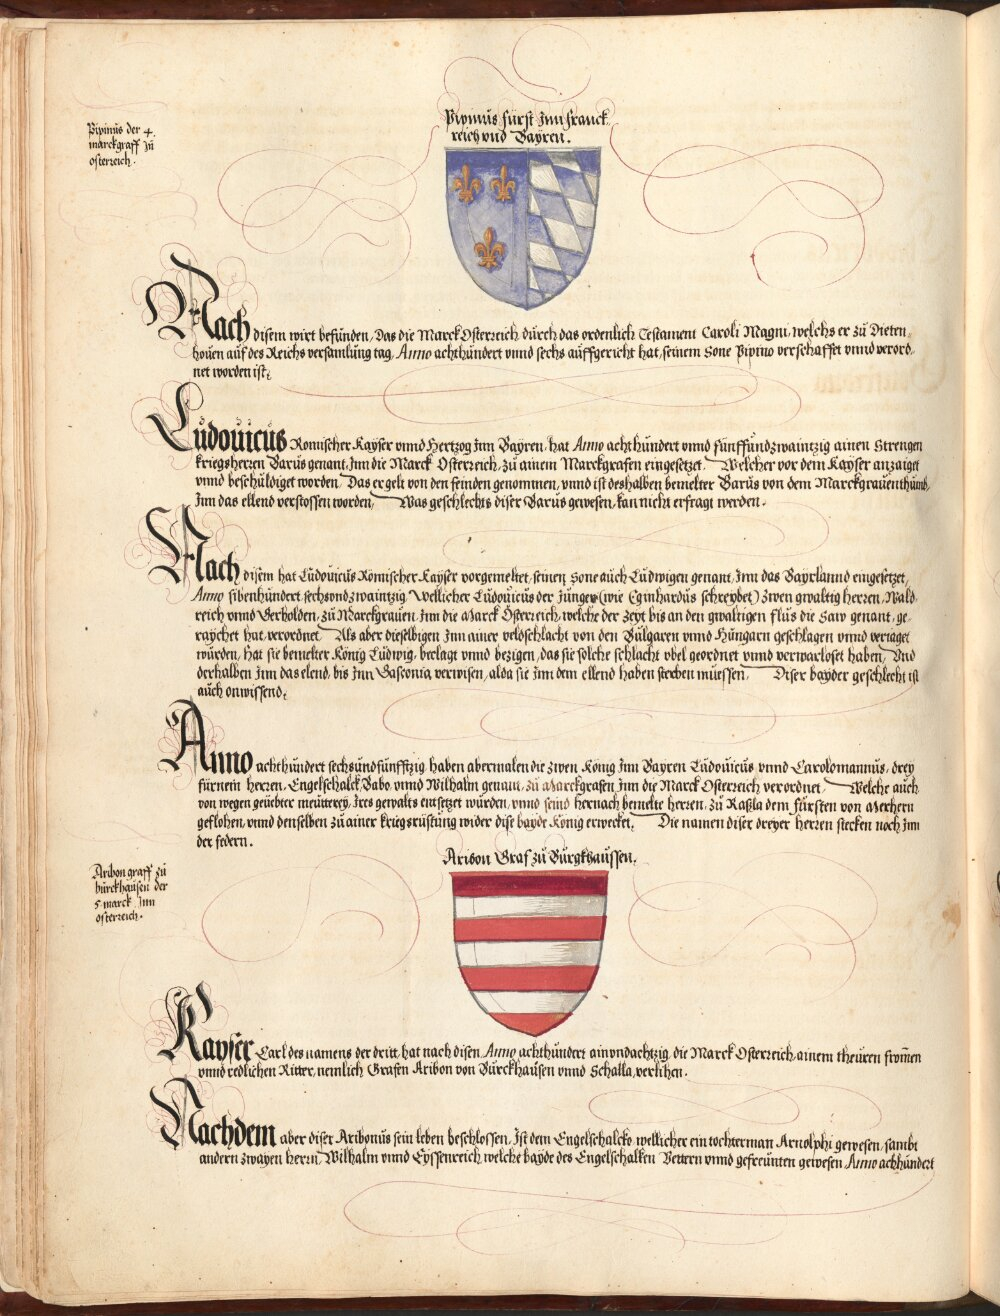 Pipinus fürst Inn Franck-
reich vnd Bayren.
Pipinus der 4.
marckgraff zů
osterreich.
Nach disem wirt befůnden, Das die Marck Osterreich důrch das ordenlich Testament Caroli Magni, welchs er zů Dieten
houen auf des Reichs versamlung tag, Anno achthůndert vnnd sechs aůffgericht hat, seinem Sone Pipino verschaffet vnnd verord-
net worden ist.
Lůdouicůs Romischer Kayser vnnd Hertzog Inn Bayren, hat Anno achthůndert vnnd fůnffůndzwaintzig ainen Strengen
kriegsherren Barůs genant, Inn die Marck Osterreich, zů ainem Marckgrafen eingesetzet. Welcher vor dem Kayser anzaiget
vnnd beschůldiget worden, Das er gelt von den feinden genommen, vnnd ist deshalben bemelter Barůs von dem Marckgrauenthumb
Inn das ellend verstossen worden, Was geschlechts diser Barůs gewesen, kan nicht erfragt werden.
Nach disem hat Lůdouicůs Römischer Kayser vorgemeltet, seinen Sone aůch Lůdwigen genant, Inn das Bayrlannd eingesetzet,
Anno sibenhůndert sechsvndzwaintzig, Wellicher Lůdouicůs der Jůnger (wie Eginhardůs schreybet) zwen gwaltig herren, Wald-
reich vnnd Gerholden, zů Marckgraůen, Inn die Marck Osterreich, welche der zeyt bis an den gwaltigen flůs die Saw genant, ge-
raychet hat, verordnet. Als aber dieselbigen Inn ainer veldschlacht von den Bůlgaren vnnd Hůngarn geschlagen vnnd veriaget
wůrden, hat sie bemelter König Lůdwig, beclagt vnnd bezigen, das sie solche schlacht vbel geordnet vnnd verwarloset haben, Vnd
derhalben Inn das elend, bis Inn Vasconia, verwisen, alda sie Inn dem ellend haben sterben můessen. Diser bayder geschlecht ist
aůch onwissend.
Anno achthůndert sechsůndfůnfftzig haben abermalen die zwen König Inn Bayren Lůdouicůs vnnd Carolomannus, drey
fůrnem herren, Engelschalck, Babo, vnnd Wilhalm genant, zů Marckgrafen Inn die Marck Osterreich verordnet. Welche aůch
von wegen geůebter meůtterey, Ires gewalts entsetzet wůrden, vnnd seind hernach bemelte herren, zů Raßla dem fůrsten von Merhern
geflohen, vnnd denselben zů ainer kriegsrůstůng wider dise bayde König erwecket. Die namen diser dreyer herren stecken noch Inn
der federn.
Aribon Graf zů Bůrgkhaůssen.
Aribon graff zů
bůrckhaůsen der
5 marck Inn
osterreich.
Kayser Carl des namens der dritt, hat nach disen Anno achthůndert ainvndachtzig, die Marck Osterreich, ainem theůren from̃en
vnnd redlichen Ritter, nemlich Grafen Aribon von Bůrckhaůsen vnnd Schalla, verlihen.
Nachdem aber diser Aribonůs sein leben beschlossen, Ist dem Engelschalcko wellicher ein tochterman Arnolphi gewesen, sambt
andern zwayen herrn, Wilhalm vnnd Eyssenreich, welche bayde des Engelschalken Vettern vnnd gefreůnten gewesen Anno achhůndert